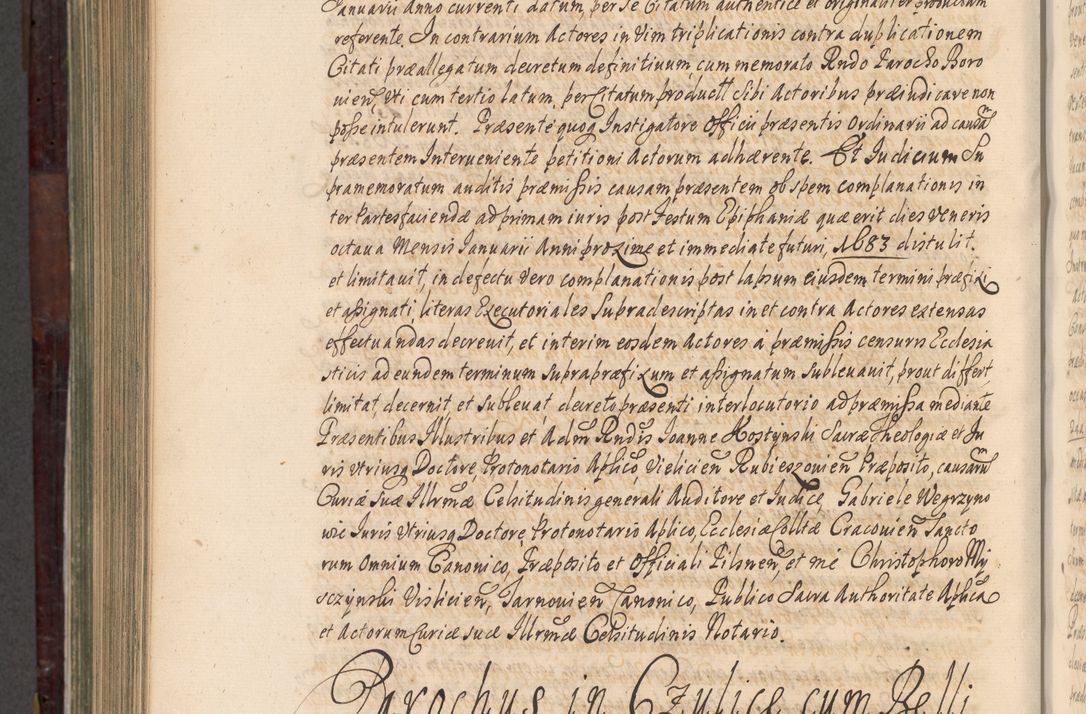 Januarii Anno currenti datum, per se Citatum authentice et originaliter productam
referente. In contrarium Actores in vim triplicationis contra duplicationem
Citati præallegatum decretum definitiuum cum memorato Rndo Parocho Boro
uien, Vti cum tertio latum, per Citatum productt sibi Actoribus præiudicare non
posse intulerunt. Præsente quoq Instigatore Officii præsentis Ordinarii ad causam
præsentem Interueniente petitioni Actorum adhærente. Et Iudicium Su
pramemoratum auditis præmissis causam præsentem ob spem complanationis in
ter Partes faciendæ ad primam iuris post Festum Epiphaniæ quæ erit dies Veneris
octaua Mensis Ianuarii Anni proxime et immediate futuri, 1683 distulit.
et limitauit, in defectu vero complanationis post lapsum eiusdem termini præfixi
et assignati, literas Executoriales supradescriptas in et contra Actores extensas
effectuandas decreuit, et interim eosdem Actores a præmissis censuris Ecclesia
sticis ad eundem terminum supra præfixum et assignatum subleuauit, prout differt,
limitat, decernit, et subleuat decreto præsenti interlocutorio ad præmissa mediante
Præsentibus Illustribus et Adm Rndis Ioanne Hostynski Sacræ Theologiæ et Iu
ris Vtriusq Doctore, Protonotario Aplico, Vielicien Rubieszouien Præposito, causarum
Curiæ Suæ Illrmæ Celsitudinis generali Auditore et Iudice, Gabriele Wegrzyno
wic Iuris Vtriusq Doctore Protonotario Aplico, Ecclesiæ Colltæ Cracouien Sancto
rum Omnium Canonico, Præposito et Officiali Pilsnen, et me Christophoro My
sczynski Visliciен, Tarnouien Canonico, Publico Sacra Authoritate Aplica
et Actorum Curiæ suæ Illrmæ Celsitudinis Notario.
Parochus in Czulice cum Belli